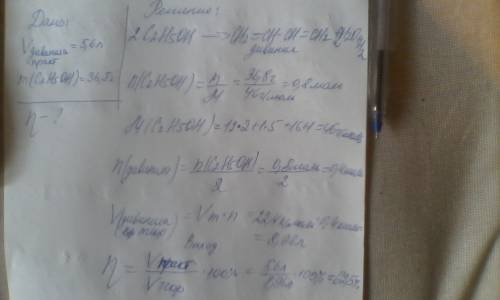 Дано:
V дивинила практ = 5,6л
m(C2H5OH) = 36,8г
η - ?
Решение:
2 C2H5OH → CH2=CH-CH=CH2 + H2O + H2
дивинил
n(C2H5OH) = m/M = 36,8г/46г/моль = 0,8моль
M(C2H5OH) = 12·2+1·5+16+1 = 46г/моль
n(дивинил) = n(C2H5OH)/2 = 0,8моль/2 = 0,4моль
V дивинила теор = Vm·n = 22,4л/моль·0,4моль = 8,96л
Выход
η = Vпракт/Vтеор ·100% = 5,6л/8,96л ·100% = 62,5%